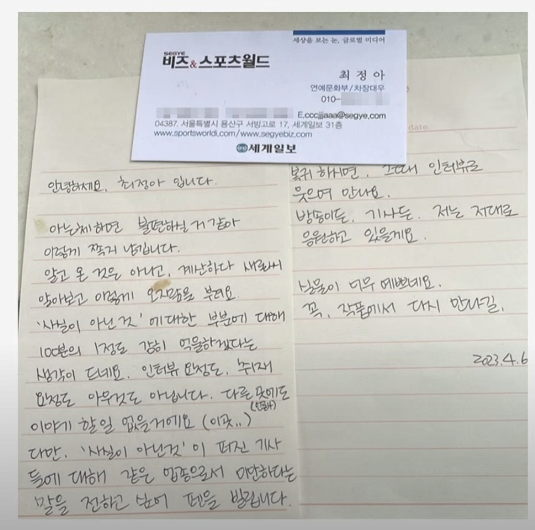 세상을 보는 눈, 글로벌 미디어
SEGYE
비즈&스포츠월드
최 정 아
연예문화부/차장대우
010-
E.cccjjaaa@segye.com
04387. 서울특별시 용산구 서빙고로 17, 세계일보 31층
www.sportsworldi.com/www.segyebiz.com
세계일보
date
안녕하세요, 최정아 입니다.
아는체하면 불편하실거 같아
이렇게 쪽지 남깁니다.
알고 온 것은 아니고, 계산하다 새로이
알아보고 이렇게 오지랖을 부려요
'사실이 아닌 것'에 대한 부분에 대해
100분의 1정도 감히 억울하겠다는
생각이 드네요. 인터뷰 요청도, 취재
요청도 아무것도 아닙니다. 다른 곳에도
이야기 할일 없을거에요 (이곳..)
다만, '사실이 아닌것'이 퍼진 기사
들에 대해 같은 업종으로서 미안하다는
말을 전하고 싶어 펜을 빌립니다.
복귀 하시면, 그때 인터뷰로
웃으며 만나요.
방송이든, 기사든, 저는 저대로
응원하고 있을게요.
실물이 너무 예쁘네요.
꼭, 작품에서 다시 만나길.
2023.4.6